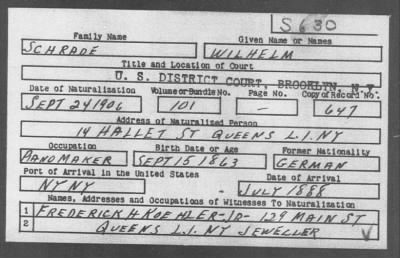 S 630
Family Name Given Name or Names
SCHRADE WILHELM
Title and Location of Court
U. S. DISTRICT COURT, BROOKLYN, N.Y.
Date of Naturalization Volume or Bundle No. Page No. Copy of Record No.
SEPT 24 1906 101 647
Address of Naturalized Person
14 HALLET ST QUEENS L.I. NY
Occupation Birth Date or Age Former Nationality
SEPT 15 1863 GERMAN
Port of Arrival in the United States Date of Arrival
NY NY JULY 1888
Names, Addresses and Occupations of Witnesses To Naturalization
1 FREDERICK H KOEHLER-JR- 129 MAIN ST
2 QUEENS L.I. NY JEWELLER